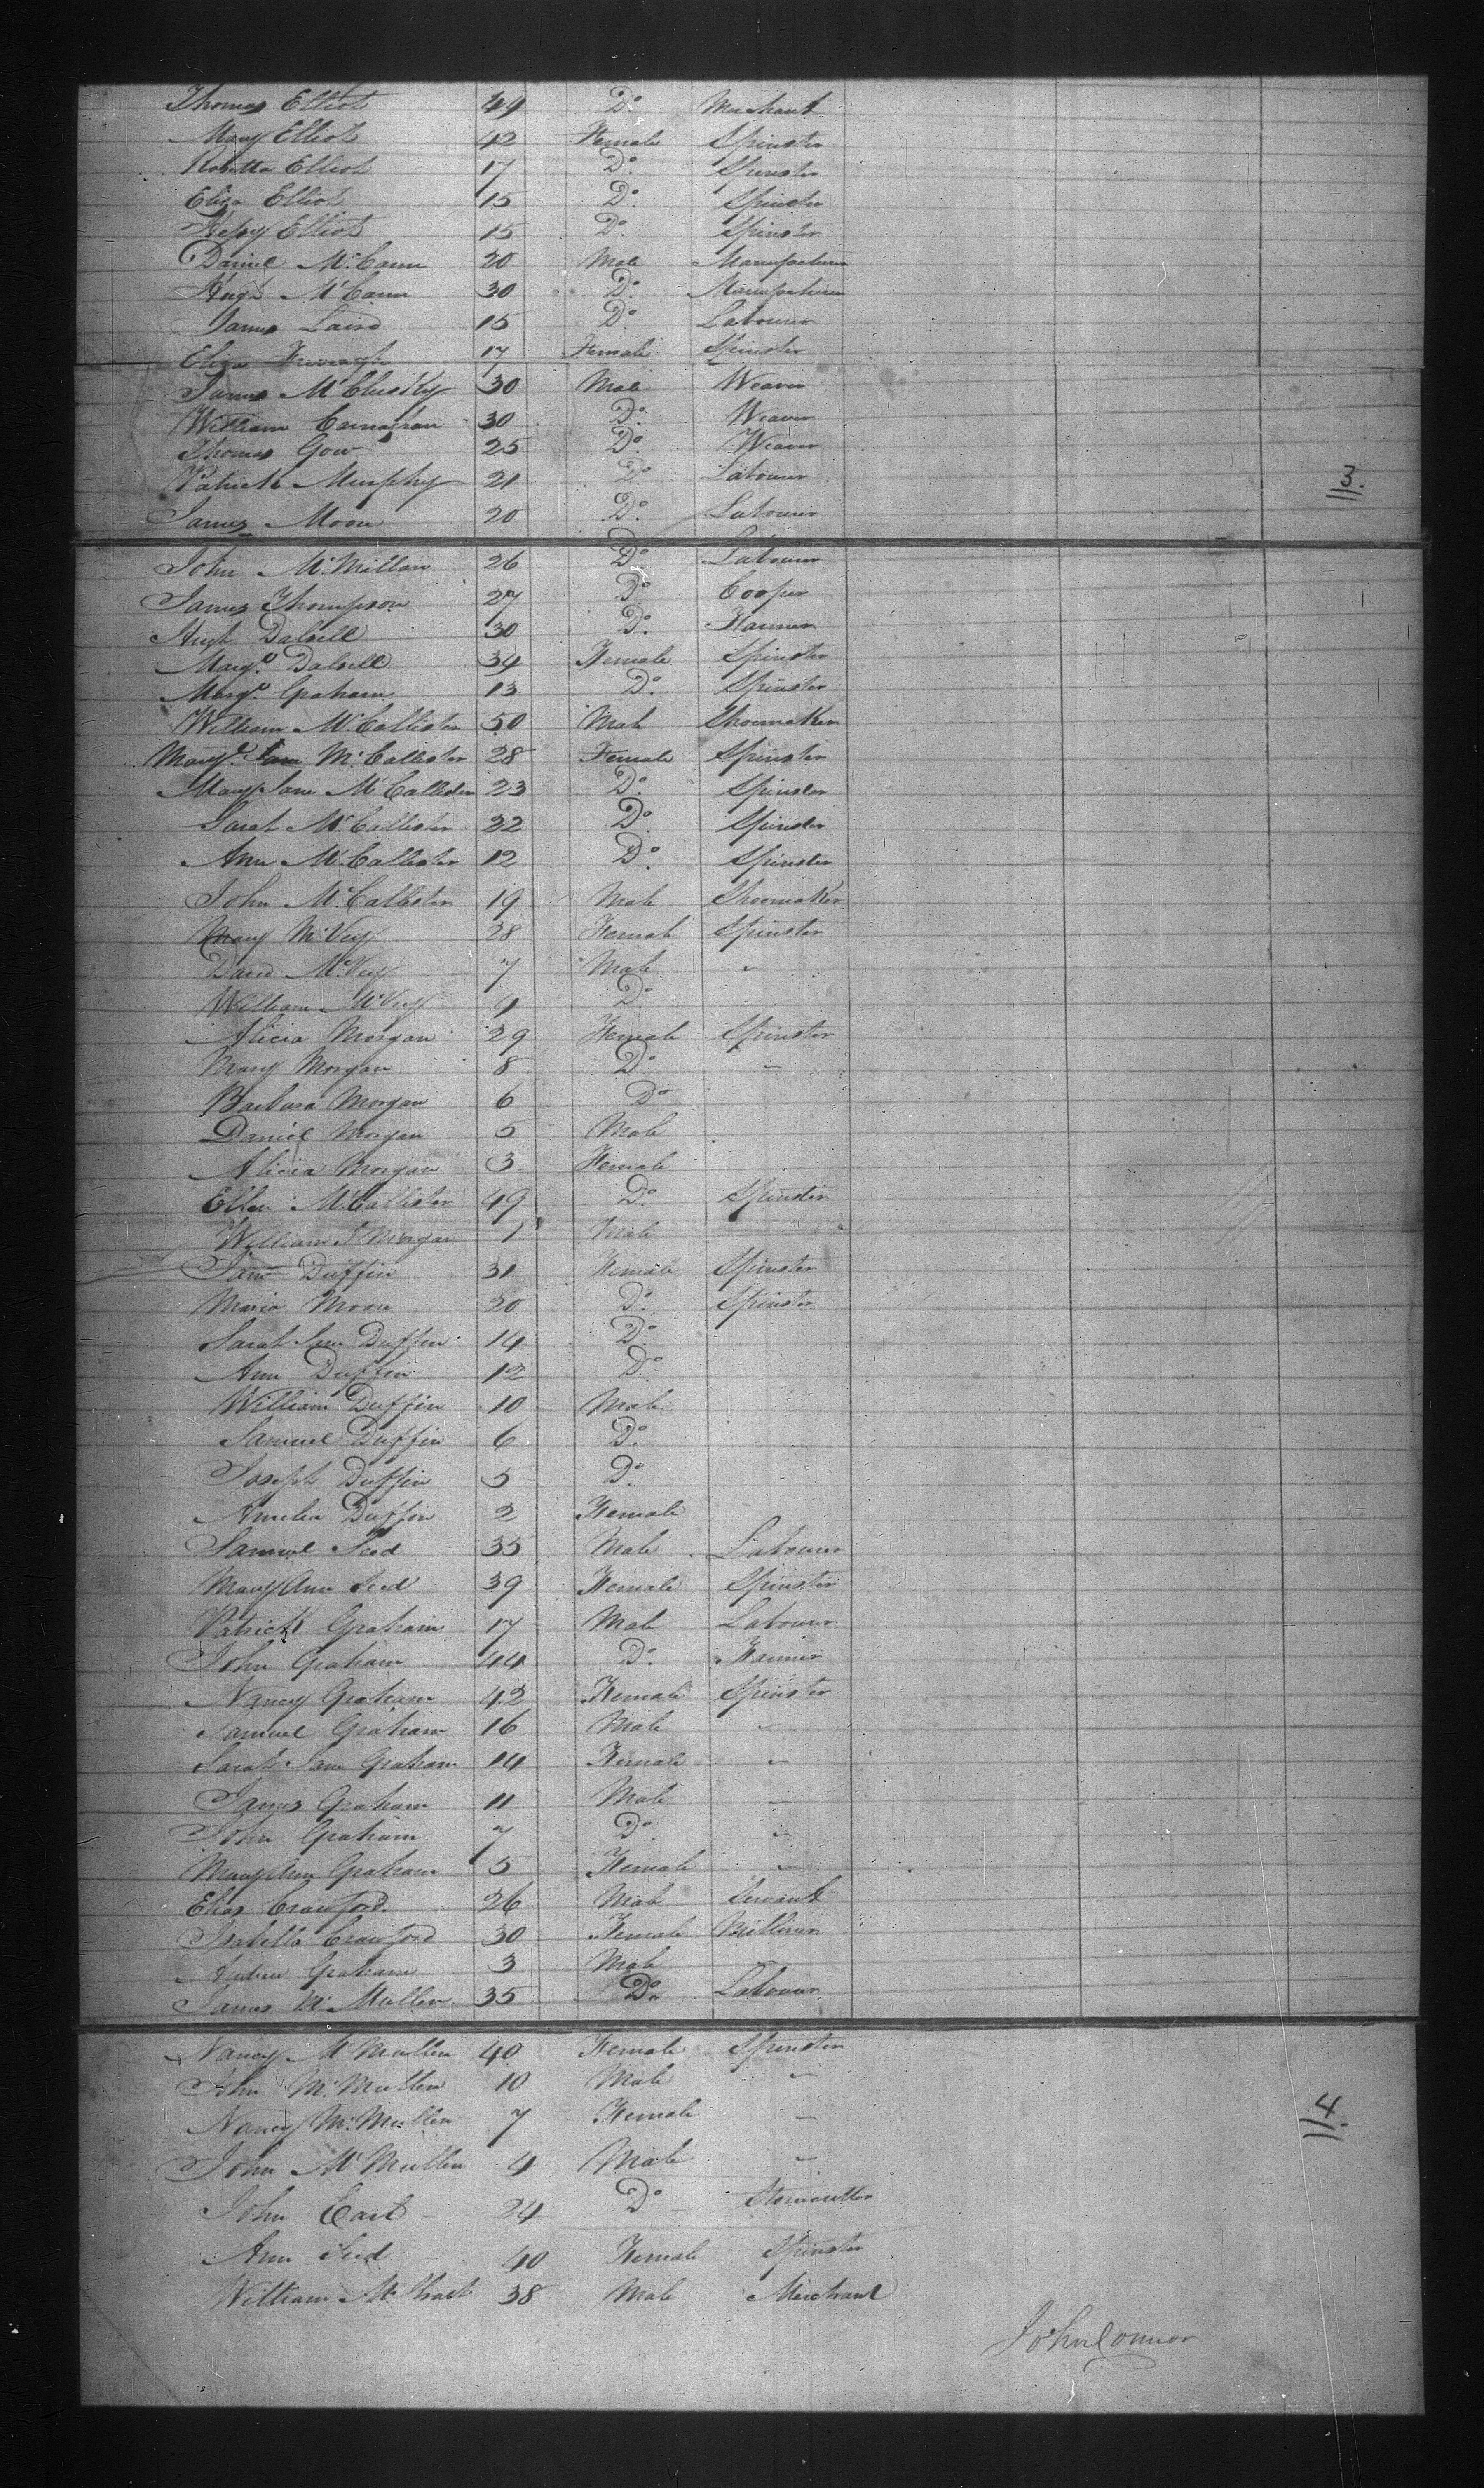 Thomas Elliot 44 Do. Merchant
Mary Elliot 42 Female Spinster
Rosetta Elliot 17 Do. Spinster
Eliza Elliot 15 Do. Spinster
Elliot 15 Do. Spinster
Daniel McCann 20 Male Manufacturer
Hugh McCann 30 Do. Manufacturer
James Laird 15 Do. Labourer
Eliza 17 Female Spinster
James McClusky 30 Male Weaver
William Carnaghan 30 Do. Weaver
Thomas Gow 25 Do. Weaver
Patrick Murphy 21 Do. Labourer
3.
James Moore 20 Do. Labourer
John McMillan 26 Do. Labourer
James Thompson 27 Do. Cooper
Hugh Dalzell 30 Do. Farmer
Margt. Dalzell 34 Female Spinster
Margt. Graham 13 Do. Spinster
William McCallister 50 Male Shoemaker
Margt. McCallister 28 Female Spinster
Mary Jane McCallister 23 Do. Spinster
Sarah McCallister 22 Do. Spinster
Ann McCallister 12 Do. Spinster
John McCallister 19 Male Shoemaker
Mary McVey 28 Female Spinster
David McVey 7 Male "
William McVey 4 Do.
Alicia Morgan 29 Female Spinster
Mary Morgan 8 Do. "
Barbara Morgan 6 Do
Daniel Morgan 5 Male
Alicia Morgan 3 Female
Ellen McCallister 49 Do. Spinster
William J Morgan 1 Male
Jane Duffin 31 Female Spinster
Maria Moore 20 Do. Spinster
Sarah Jane Duffin 14 Do.
Ann Duffin 12 Do.
William Duffin 10 Male
Samuel Duffin 6 Do.
Joseph Duffin 5 Do.
Amelia Duffin 2 Female
Samuel Seed 35 Male Labourer
Mary Ann Seed 39 Female Spinster
Patrick Graham 17 Male Labourer
John Graham 44 Do. Farmer
Nancy Graham 42 Female Spinster
Samuel Graham 16 Male "
Sarah Jane Graham 14 Female "
James Graham 11 Male "
John Graham 7 Do. "
Mary Ann Graham 5 Female "
Elias Crawford 26 Male Servant
Isabella Crawford 30 Female Milliner
Andrew Graham 3 Male
James McMullen 35 Do. Labourer
Nancy McMullen 40 Female Spinster
John McMullen 10 Male "
Nancy McMullen 7 Female "
4.
John McMullen 4 Male "
John Earl 24 Do Stonecutter
Ann Seed 40 Female Spinster
William 38 Male Merchant
John Connor